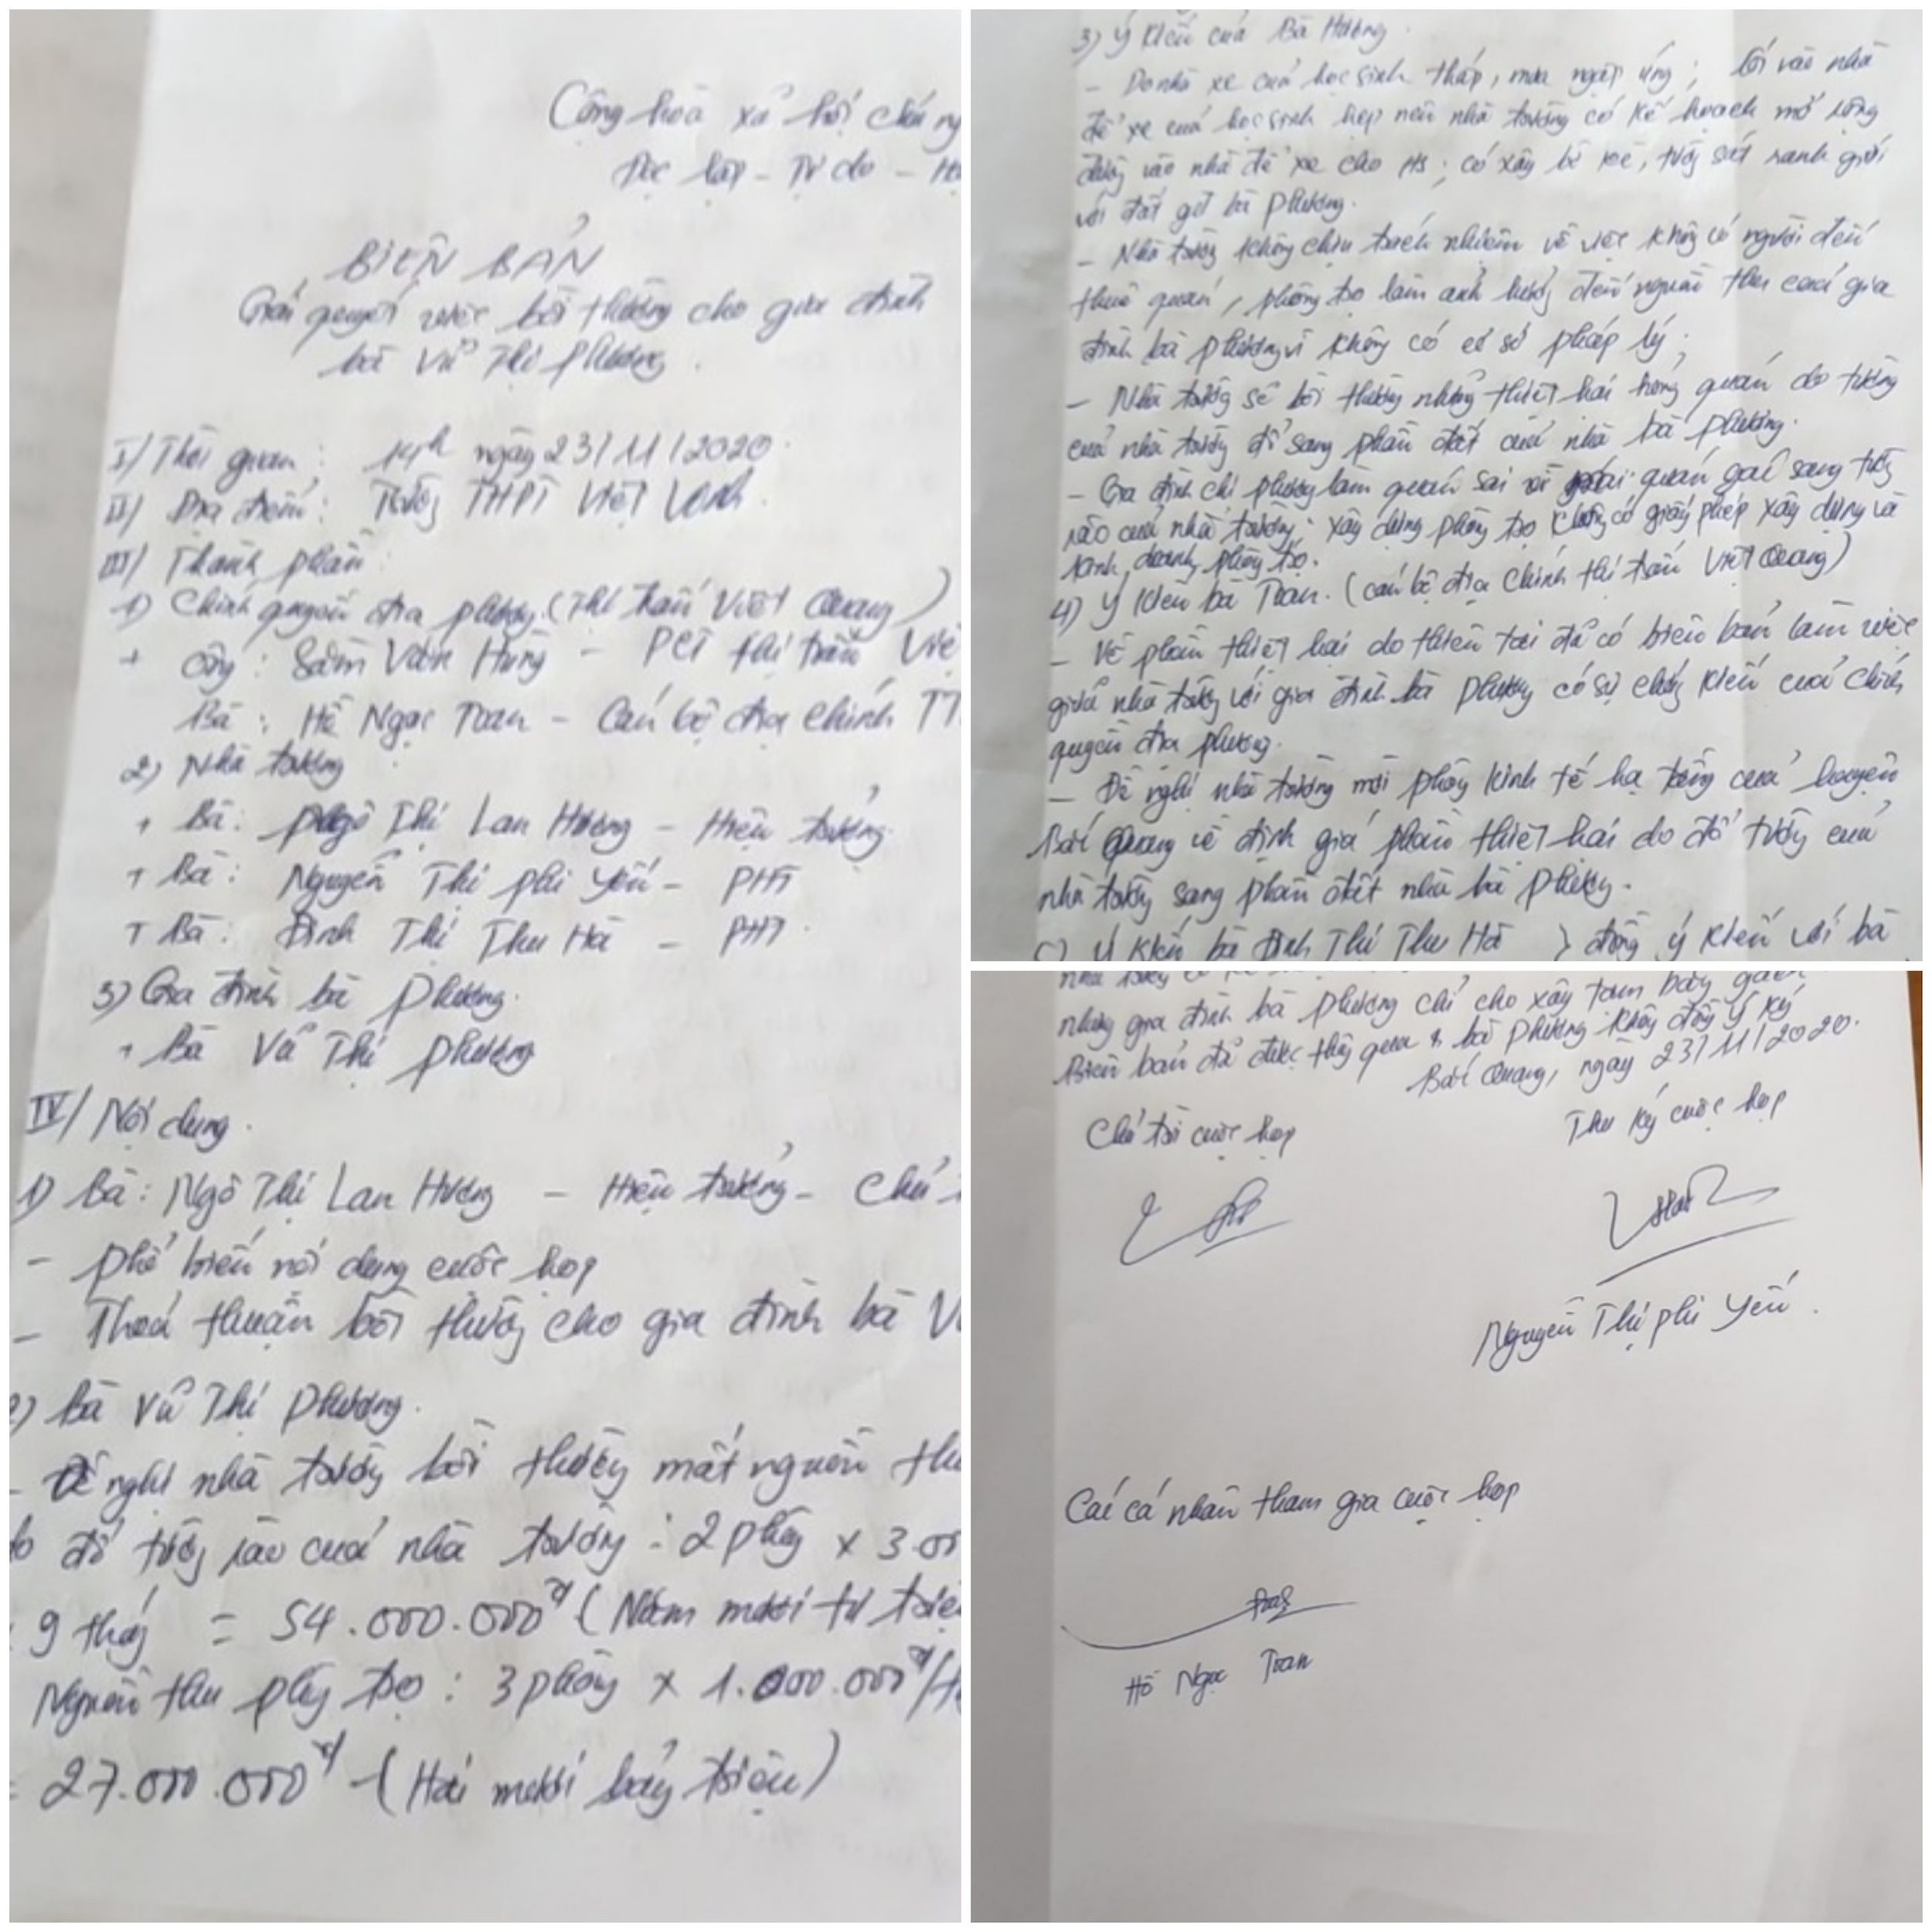 Cộng hoà xã hội chủ ng
Độc lập - Tự do - H
BIÊN BẢN
Giải quyết việc bồi thường cho gia đình
bà Vũ Thị Phương.
I/ Thời gian: 14h ngày 23/11/2020.
II/ Địa điểm: Trường THPT Việt Vinh.
III/ Thành phần:
1) Chính quyền địa phương (Thị trấn Việt Quang)
+ Ông: Sầm Văn Hùng - PCT thị trấn Việ
Bà: Hồ Ngọc Toan - Cán bộ địa chính TT
2) Nhà trường
+ Bà: Ngô Thị Lan Hương - Hiệu trưởng.
+ Bà: Nguyễn Thị Phi Yến - PHT
+ Bà: Đinh Thị Thu Hà - PHT.
3) Gia đình bà Phương.
+ Bà Vũ Thị Phương
IV/ Nội dung.
1) Bà: Ngô Thị Lan Hương - Hiệu trưởng - Chủ
- Phổ biến nội dung cuộc họp
- Thoả thuận bồi thường cho gia đình bà V
2) Bà Vũ Thị Phương.
- Đề nghị nhà trường bồi thường mất nguồn thu
do đổ tường rào của nhà trường: 2 phòng x 3.00
9 tháng = 54.000.000đ (Năm mươi tư triệ
Nguồn thu phòng trọ: 3 phòng x 1.000.000đ/th
= 27.000.000đ (Hai mươi bảy triệu)
3) Ý kiến của Bà Hương.
- Do nhà xe của học sinh thấp, mưa ngập úng; lối vào nhà
để xe của học sinh hẹp nên nhà trường có kế hoạch mở rộng
đường vào nhà để xe cho HS; có xây bờ kè, tường sát ranh giới
với đất gđ bà Phương.
- Nhà trường không chịu trách nhiệm về việc không có người đến
thuê quán, phòng trọ làm ảnh hưởng đến nguồn thu của gia
đình bà Phương vì không có cơ sở pháp lý;
- Nhà trường sẽ bồi thường những thiệt hại hỏng quán do tường
của nhà trường đổ sang phần đất của nhà bà Phương.
- Gia đình chị Phương làm quán sai vì quán gác sang tường
rào của nhà trường; xây dựng phòng trọ không có giấy phép xây dựng và
kinh doanh phòng trọ.
4) Ý kiến bà Toan. (cán bộ địa chính thị trấn Việt Quang)
- Về phần thiệt hại do thiên tai đã có biên bản làm việc
giữa nhà trường với gia đình bà Phương có sự chứng kiến của chính
quyền địa phương.
- Đề nghị nhà trường mời phòng kinh tế hạ tầng của huyện
Bắc Quang về định giá phần thiệt hại do đổ tường của
nhà trường sang phần đất nhà bà Phương.
5) Ý kiến bà Đinh Thị Thu Hà } đồng ý kiến với bà
nhà trường có
nhưng gia đình bà Phương chỉ cho xây tạm bằng gạch
Biên bản đã được thông qua & bà Phương không đồng ý ký
Bắc Quang, ngày 23/11/2020.
Chủ trì cuộc họp
Thư ký cuộc họp
Nguyễn Thị Phi Yến.
Các cá nhân tham gia cuộc họp
Hồ Ngọc Toan